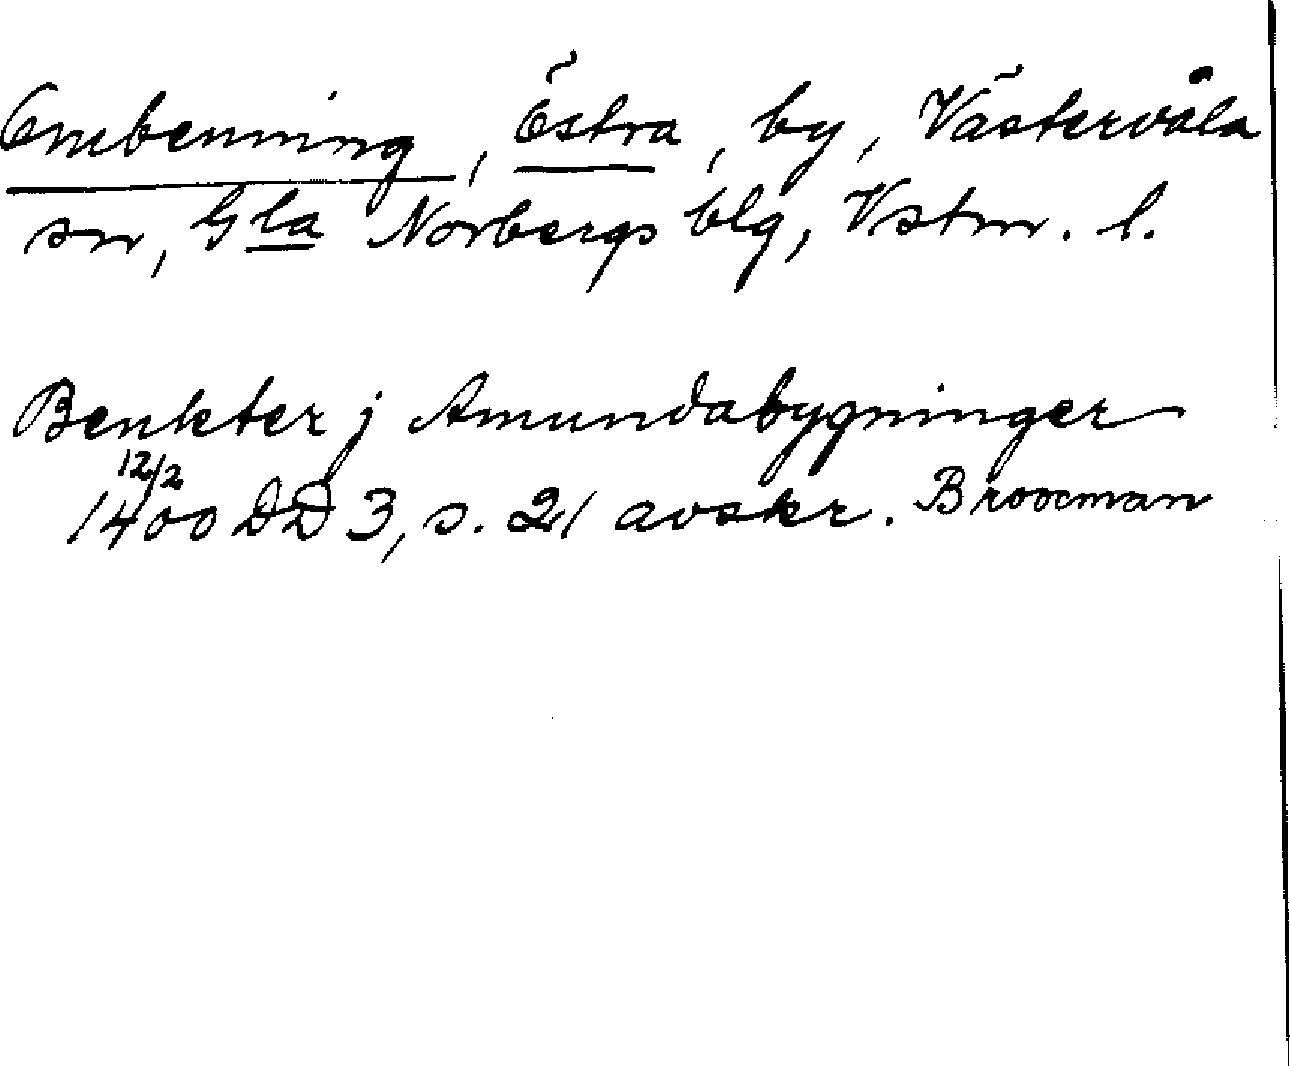 Embenning, Östra, by, Västervåla
sn, Gla Norbergs blg, Vstm. l.
Benkter j Amundabygninger
12/2
1400 DD 3, s. 21 avskr. Broocman